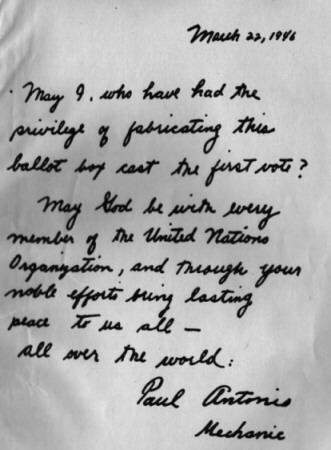 March 22, 1946
May I, who have had the
privilege of fabricating this
ballot box cast the first vote?
May God be with every
member of the United Nations
Organization, and through your
noble efforts bring lasting
peace to us all —
all over the world:
Paul Antonio
Mechanic